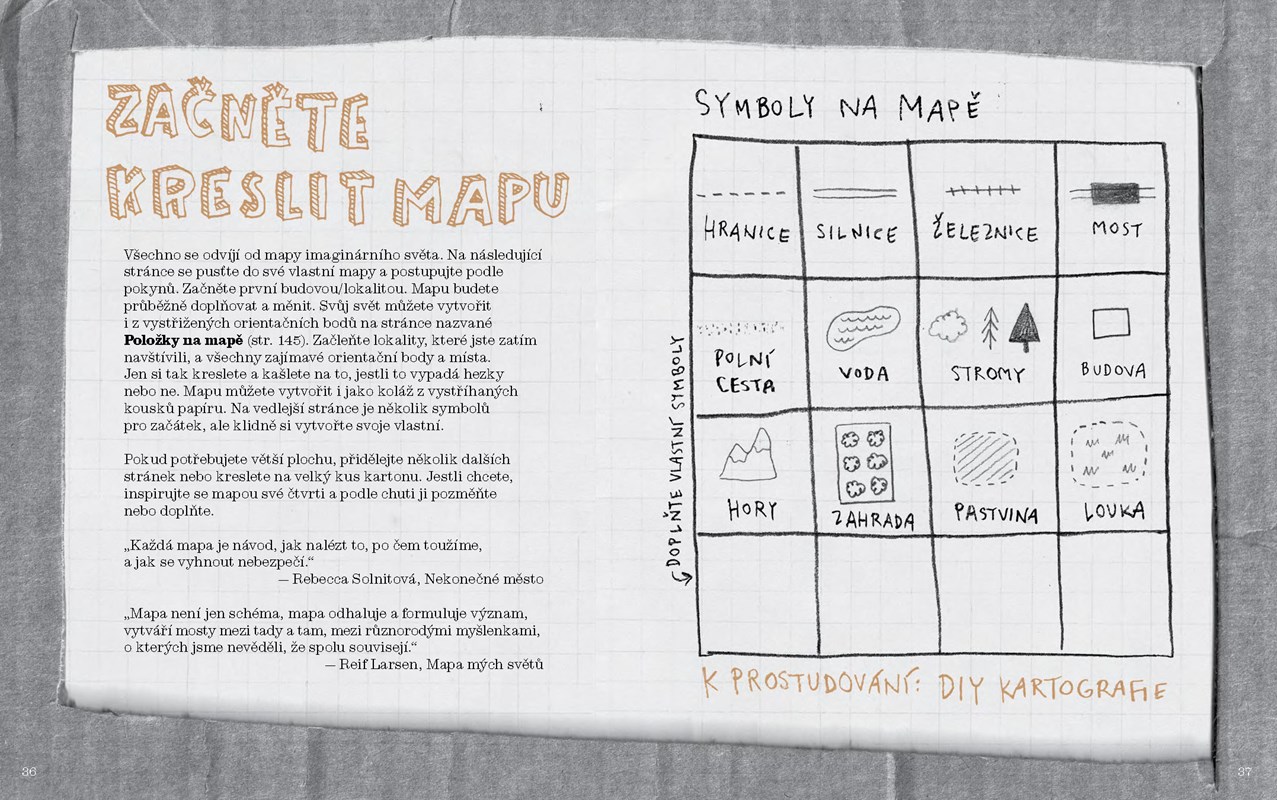 ZAČNĚTE
KRESLIT MAPU
Všechno se odvíjí od mapy imaginárního světa. Na následující
stránce se pusťte do své vlastní mapy a postupujte podle
pokynů. Začněte první budovou/lokalitou. Mapu budete
průběžně doplňovat a měnit. Svůj svět můžete vytvořit
i z vystřižených orientačních bodů na stránce nazvané
Položky na mapě (str. 145). Začleňte lokality, které jste zatím
navštívili, a všechny zajímavé orientační body a místa.
Jen si tak kreslete a kašlete na to, jestli to vypadá hezky
nebo ne. Mapu můžete vytvořit i jako koláž z vystříhaných
kousků papíru. Na vedlejší stránce je několik symbolů
pro začátek, ale klidně si vytvořte svoje vlastní.
Pokud potřebujete větší plochu, přidělejte několik dalších
stránek nebo kreslete na velký kus kartonu. Jestli chcete,
inspirujte se mapou své čtvrti a podle chuti ji pozměňte
nebo doplňte.
„Každá mapa je návod, jak nalézt to, po čem toužíme,
a jak se vyhnout nebezpečí.“
— Rebecca Solnitová, Nekonečné město
„Mapa není jen schéma, mapa odhaluje a formuluje význam,
vytváří mosty mezi tady a tam, mezi různorodými myšlenkami,
o kterých jsme nevěděli, že spolu souvisejí.“
— Reif Larsen, Mapa mých světů
36
SYMBOLY NA MAPĚ
HRANICE
SILNICE
ŽELEZNICE
MOST
POLNÍ
CESTA
VODA
STROMY
BUDOVA
HORY
ZAHRADA
PASTVINA
LOUKA
DOPLŇTE VLASTNÍ SYMBOLY
K PROSTUDOVÁNÍ: DIY KARTOGRAFIE
37